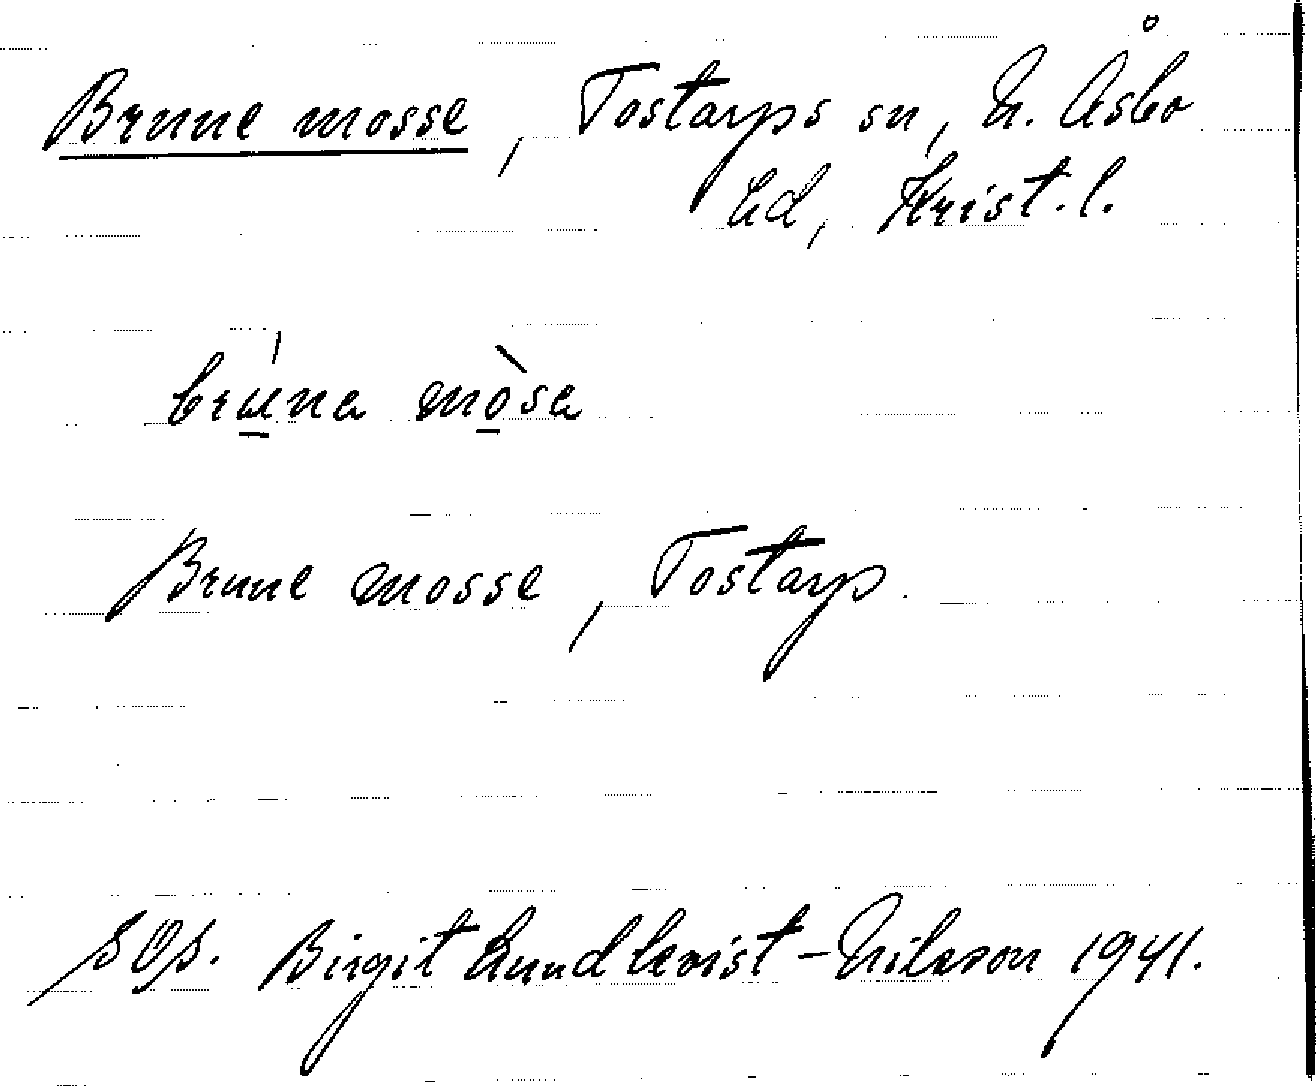 Brune mosse, Tostarps sn, N. Åsbo
hd, Krist. l.
brúna mòsa
Brune mosse, Tostarp.
SOS. Birgit Lundkvist-Nilsson 1941.